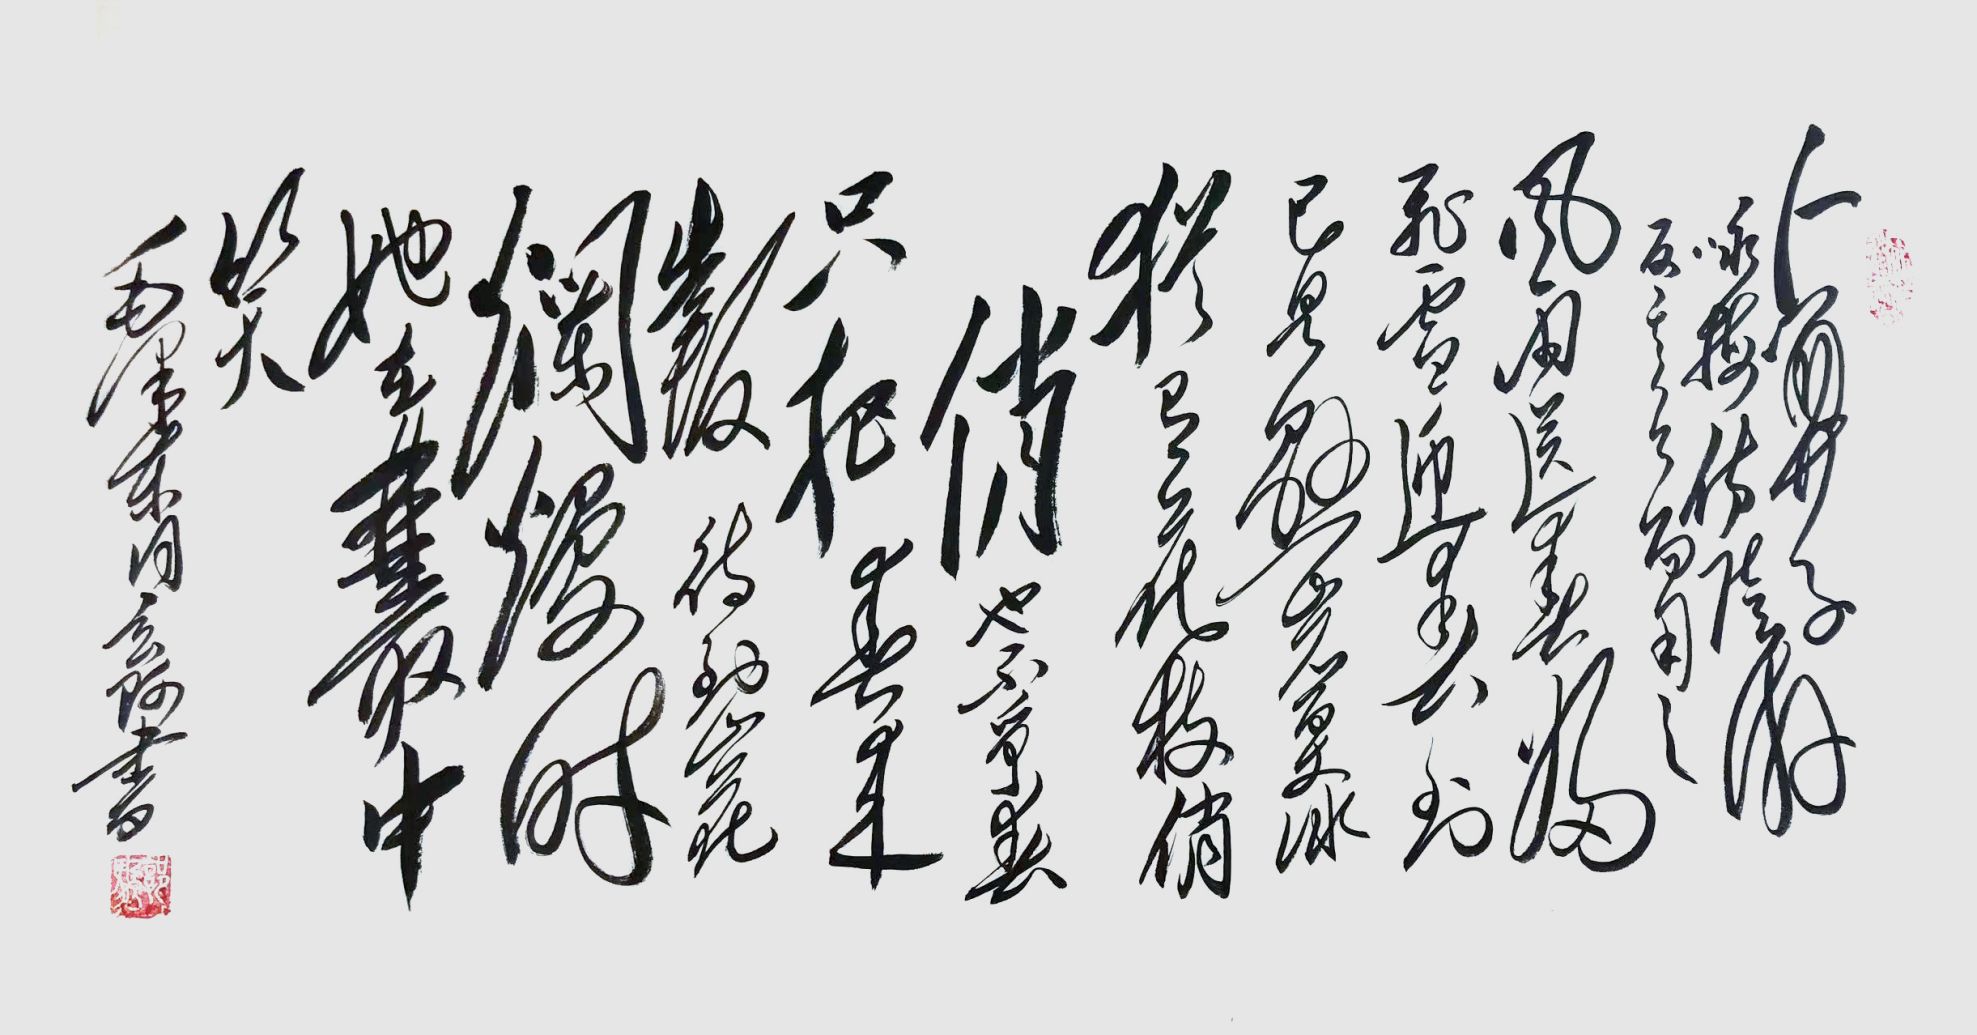 卜算子
咏梅读陆游
反其意而用之
风雨送春归
飞雪迎春到
已是悬崖百丈冰
犹有花枝俏
俏也不争春
只把春来
報待到山花
爛熳时
她在叢中
笑
毛泽东词书